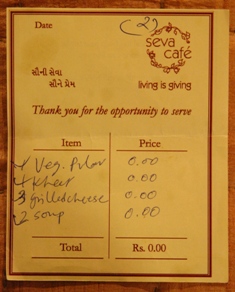 Date
(2)
seva
café
સૌની સેવા
સૌને પ્રેમ
living is giving
Thank you for the opportunity to serve
Item Price
4 Veg. Pulav 0.00
4 kheer 0.00
3 grilled cheese 0.00
2 soup 0.00
Total Rs. 0.00